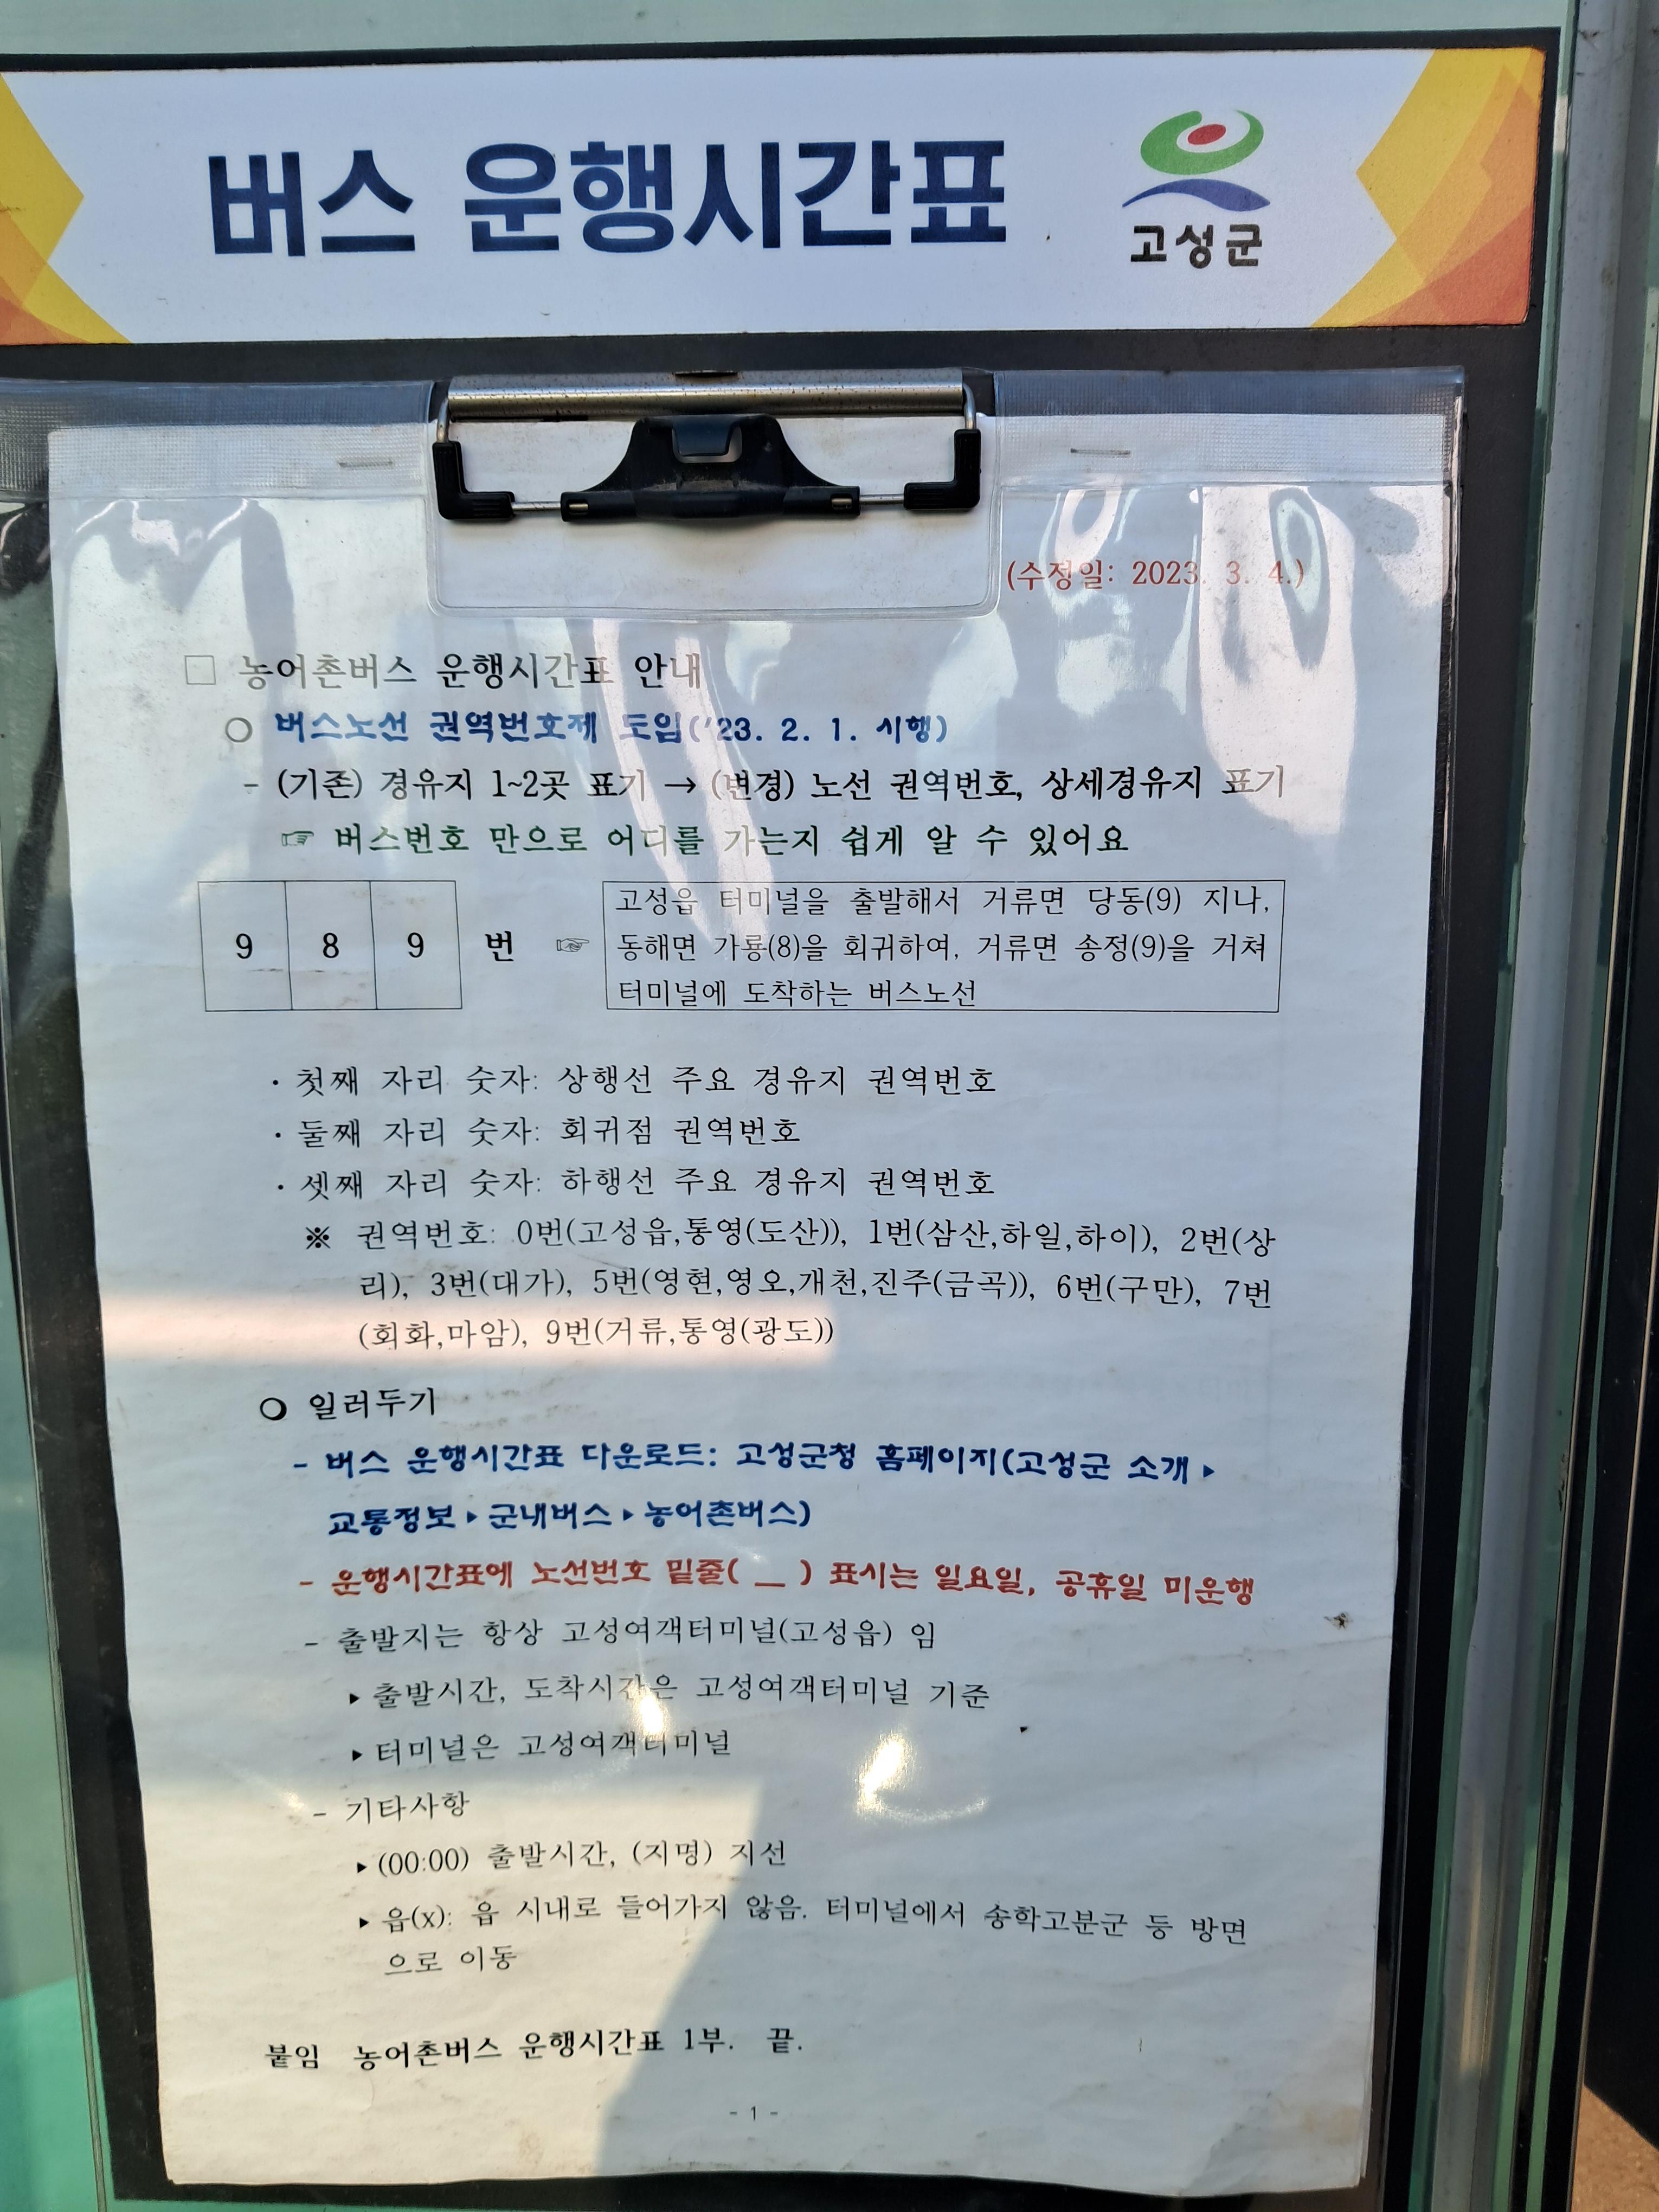 버스 운행시간표
고성군
(수정일: 2023. 3. 4.)
□ 농어촌버스 운행시간표 안내
○ 버스노선 권역번호제 도입('23. 2. 1. 시행)
- (기존) 경유지 1~2곳 표기 → (변경) 노선 권역번호, 상세경유지 표기
☞ 버스번호 만으로 어디를 가는지 쉽게 알 수 있어요
9 8 9 번 ☞
고성읍 터미널을 출발해서 거류면 당동(9) 지나,
동해면 가룡(8)을 회귀하여, 거류면 송정(9)을 거쳐
터미널에 도착하는 버스노선
· 첫째 자리 숫자: 상행선 주요 경유지 권역번호
· 둘째 자리 숫자: 회귀점 권역번호
· 셋째 자리 숫자: 하행선 주요 경유지 권역번호
※ 권역번호: 0번(고성읍,통영(도산)), 1번(삼산,하일,하이), 2번(상
리), 3번(대가), 5번(영현,영오,개천,진주(금곡)), 6번(구만), 7번
(회화,마암), 9번(거류,통영(광도))
○ 일러두기
- 버스 운행시간표 다운로드: 고성군청 홈페이지(고성군 소개 ▸
교통정보 ▸ 군내버스 ▸ 농어촌버스)
- 운행시간표에 노선번호 밑줄( _ ) 표시는 일요일, 공휴일 미운행
- 출발지는 항상 고성여객터미널(고성읍) 임
▸ 출발시간, 도착시간은 고성여객터미널 기준
▸ 터미널은 고성여객터미널
- 기타사항
▸ (00:00) 출발시간, (지명) 지선
▸ 읍(x): 읍 시내로 들어가지 않음. 터미널에서 송학고분군 등 방면
으로 이동
붙임 농어촌버스 운행시간표 1부. 끝.
- 1 -